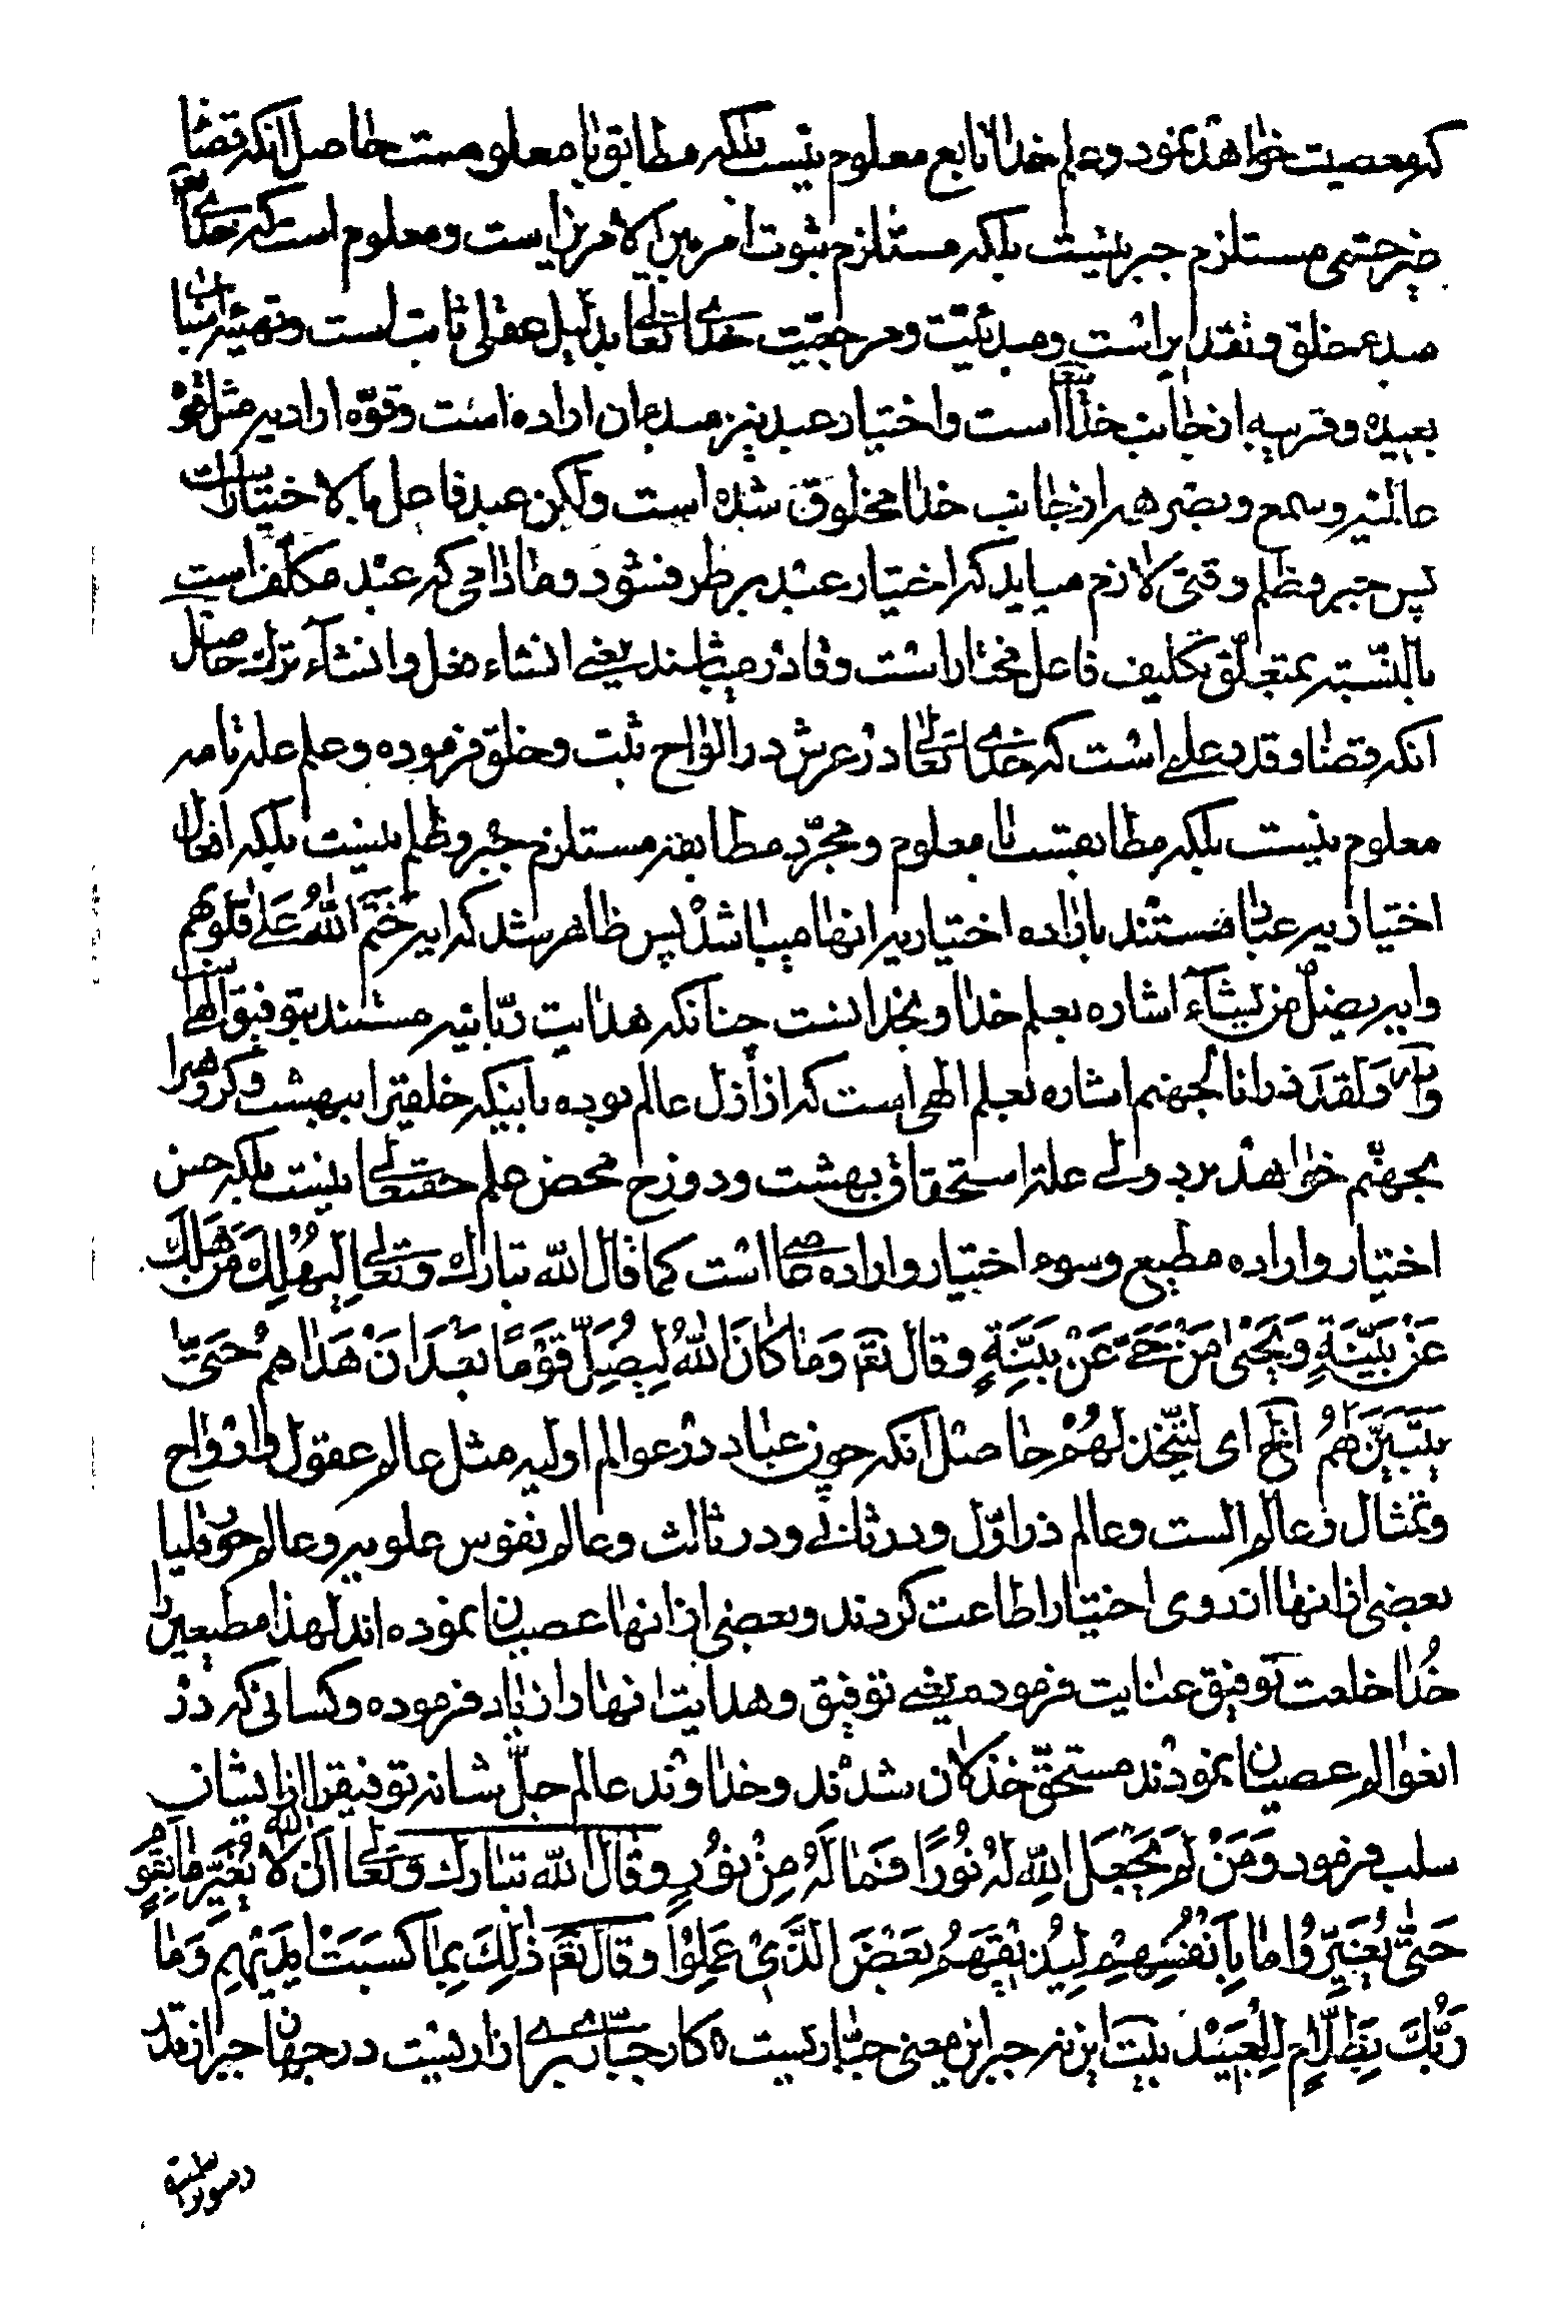 که معصیت خواهد نمود و علم خدا تابع معلوم نیست بلکه مطابق با معلومست حاصل آنکه قضا
حتمی مستلزم جبر نیست بلکه مستلزم ثبوت امر بین الامرین است و معلوم است که خدایتعا
مبدع خلق و تقدیر است و مبدئیّت و مرجعیّت خدای تعالی بدلیل عقلی ثابت است و تهیئه اسباب
بعیده و قریبه از جانب خدا است و اختیار عبد نیز مبدء آن اراده است و قوّه ارادیه مثل قوه
و سمع و بصر همه از جانب خدا مخلوق شده است ولکن عبد فاعل بالاختیار است
پس جبر و ظلم وقتی لازم میاید که اختیار عبد بر طرف شود و مادامی که عبد مکلّف است
بالنّسبته بمتعلّق تکلیف فاعل مختار است و قادر میباشد یعنی انشاء فعل و انشاء ترک حاصل
آنکه قضا و قدر علمی است که خدای تعالی در عرش در الواح ثبت و خلق فرموده و علم علة تامه
معلوم نیست بلکه مطابقست با معلوم و مجرّد مطابقه مستلزم جبر و ظلم نیست بلکه افعال
اختیاریه عباد مستند باراده اختیاریه انها میباشد پس ظاهر شد که ایه خَتَمَ اللّٰهُ عَلیٰ قُلُوبِهِم
و ایه یضلّ من یشآء اشاره بعلم خدا و بخذلانست چنانکه هدایت ربّانیه مستند بتوفیق الهی است
و آیه وَلَقَدَ ذرانا لجهنم اشاره بعلم الهی است که از ازل عالم بوده باینکه خلقیرا ببهشت و گروهیرا
بجهنّم خواهد برد ولی علة استحقاق بهشت و دوزخ محض علم حقتعالی نیست بلکه حسن
اختیار و اراده مطیع و سوء اختیار و اراده عاصی است کما قال اللّه تبارک و تعالی لِیَهْلِكَ مَنْ هَلَكَ
عَنْ بَیِّنَةٍ وَیَحْیٰى مَنْ حَیَّ عَنْ بَیِّنَةٍ و قال تع وَمَا کَانَ اللّٰهُ لِیُضِلَّ قَوْمًا بَعْدَ اِذْ هَدٰاهُمْ حَتّیٰ
یَتَبَیَّنَ لَهُمْ الخ ای لیتّخذ لَهُمْ حاصل آنکه چون عباد در عوالم اولیه مثل عالم عقول و ارواح
و تمثال و عالم الست و عالم ذر اوّل و در ثانی و در ثالث و عالم نفوس علویه و عالم هورقلیا
بعضی از انها از روی اختیار اطاعت کردند و بعضی از انها عصیان نموده اند لهذا مطیعین را
خُدا خلعت توفیق عنایت فرموده یعنی توفیق و هدایت انها را زیاد فرموده و کسانی که در
انعوالم عصیان نمودند مستحقّ خذلان شدند و خداوند عالم جلّ شانه توفیقرا از ایشان
سلب فرمود وَمَنْ لَمْ یَجْعَلِ اللّٰهِ لَهُ نُورًا فَمٰا لَهُ مِنْ نُوْرٍ و قال اللّه تبارک و تعالی اَنَّ اللّٰهَ لاٰ یُغَیِّرُ مٰا بِقَوْمٍ
حَتّیٰ یُغَیِّرُوْا مٰا بِاَنْفُسِهِمْ لِیُذِیْقَهُمْ بَعْضَ الَّذِیْ عَمِلُوْا و قال تع ذٰلِكَ بِمٰا کَسَبَتْ اَیْدِیْهِمْ وَمٰا
رَبُّكَ بِظَلاّٰمٍ لِلْعَبِیْدِ بیت این نه جبر این معنی جبّاریست ه کار جبّاری بر ازار نیست در جهان جبر از قد
در سورۀ